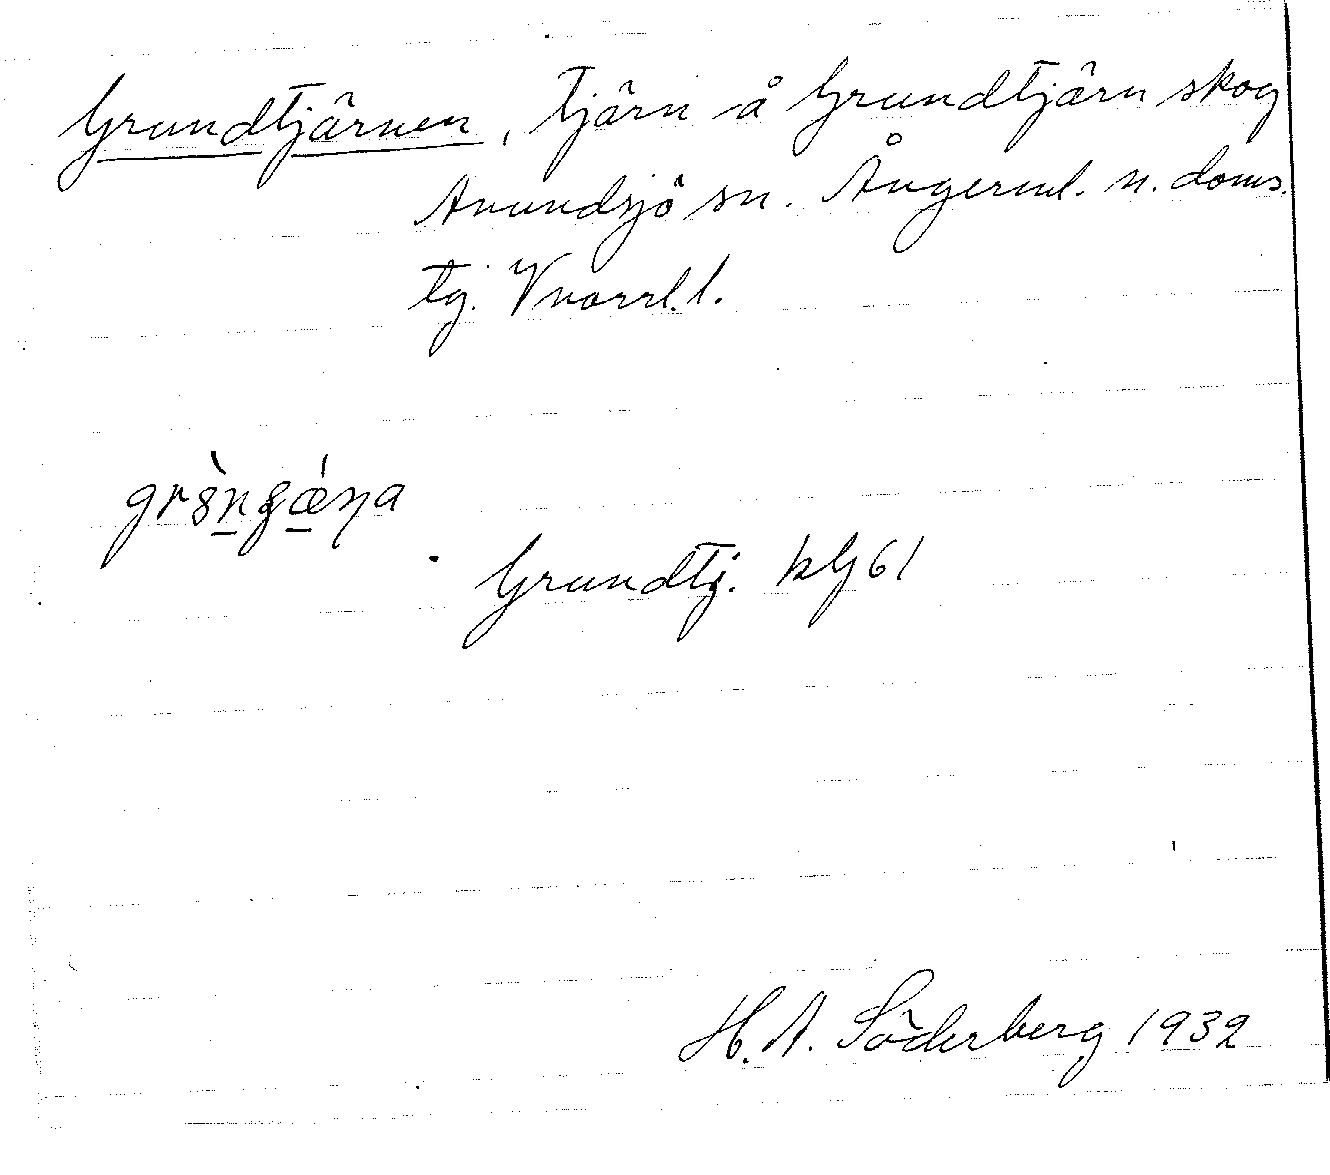 Grundtjärnen, tjärn å Grundtjärn skog
Anundsjö sn. Ångerml. n. doms.
tg. Vnorrl. l.
Grundtj. kG61
H. A. Söderberg 1932